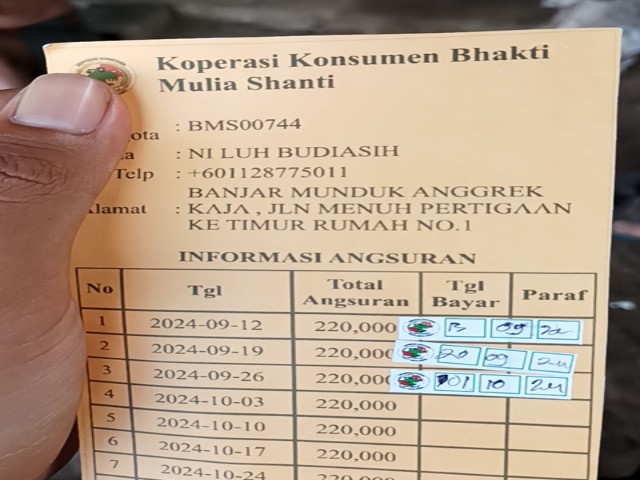 Koperasi Konsumen Bhakti
Mulia Shanti
ota : BMS00744
a : NI LUH BUDIASIH
Telp : +601128775011
BANJAR MUNDUK ANGGREK
Alamat : KAJA , JLN MENUH PERTIGAAN
KE TIMUR RUMAH NO.1
INFORMASI ANGSURAN
No Tgl Total Angsuran Tgl Bayar Paraf
1 2024-09-12 220,000 09
2 2024-09-19 220,000 20 09 24
3 2024-09-26 220,000 01 10 24
4 2024-10-03 220,000
5 2024-10-10 220,000
6 2024-10-17 220,000
7 2024-10-24 220,000